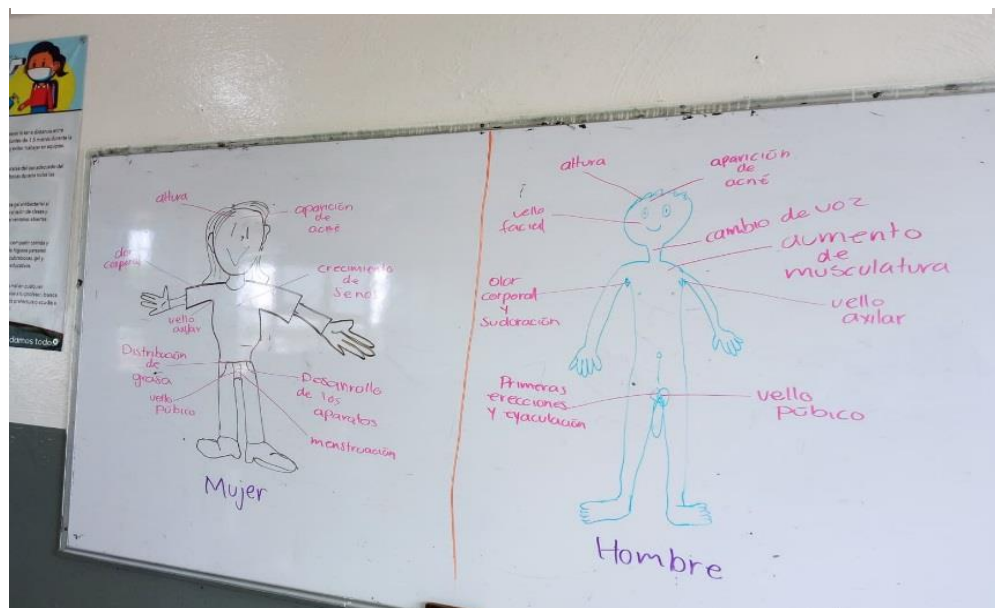 altura
aparición
de
acné
olor
corporal
crecimiento
de
Seno
vello
axilar
Distribución
de
grasa
vello
púbico
Desarrollo
de los
aparatos
menstruación
Mujer
altura
aparición
de
acné
vello
facial
cambio de voz
aumento
de
musculatura
olor
corporal
y
Sudoración
vello
axilar
Primeras
erecciones
y eyaculación
vello
púbico
Hombre